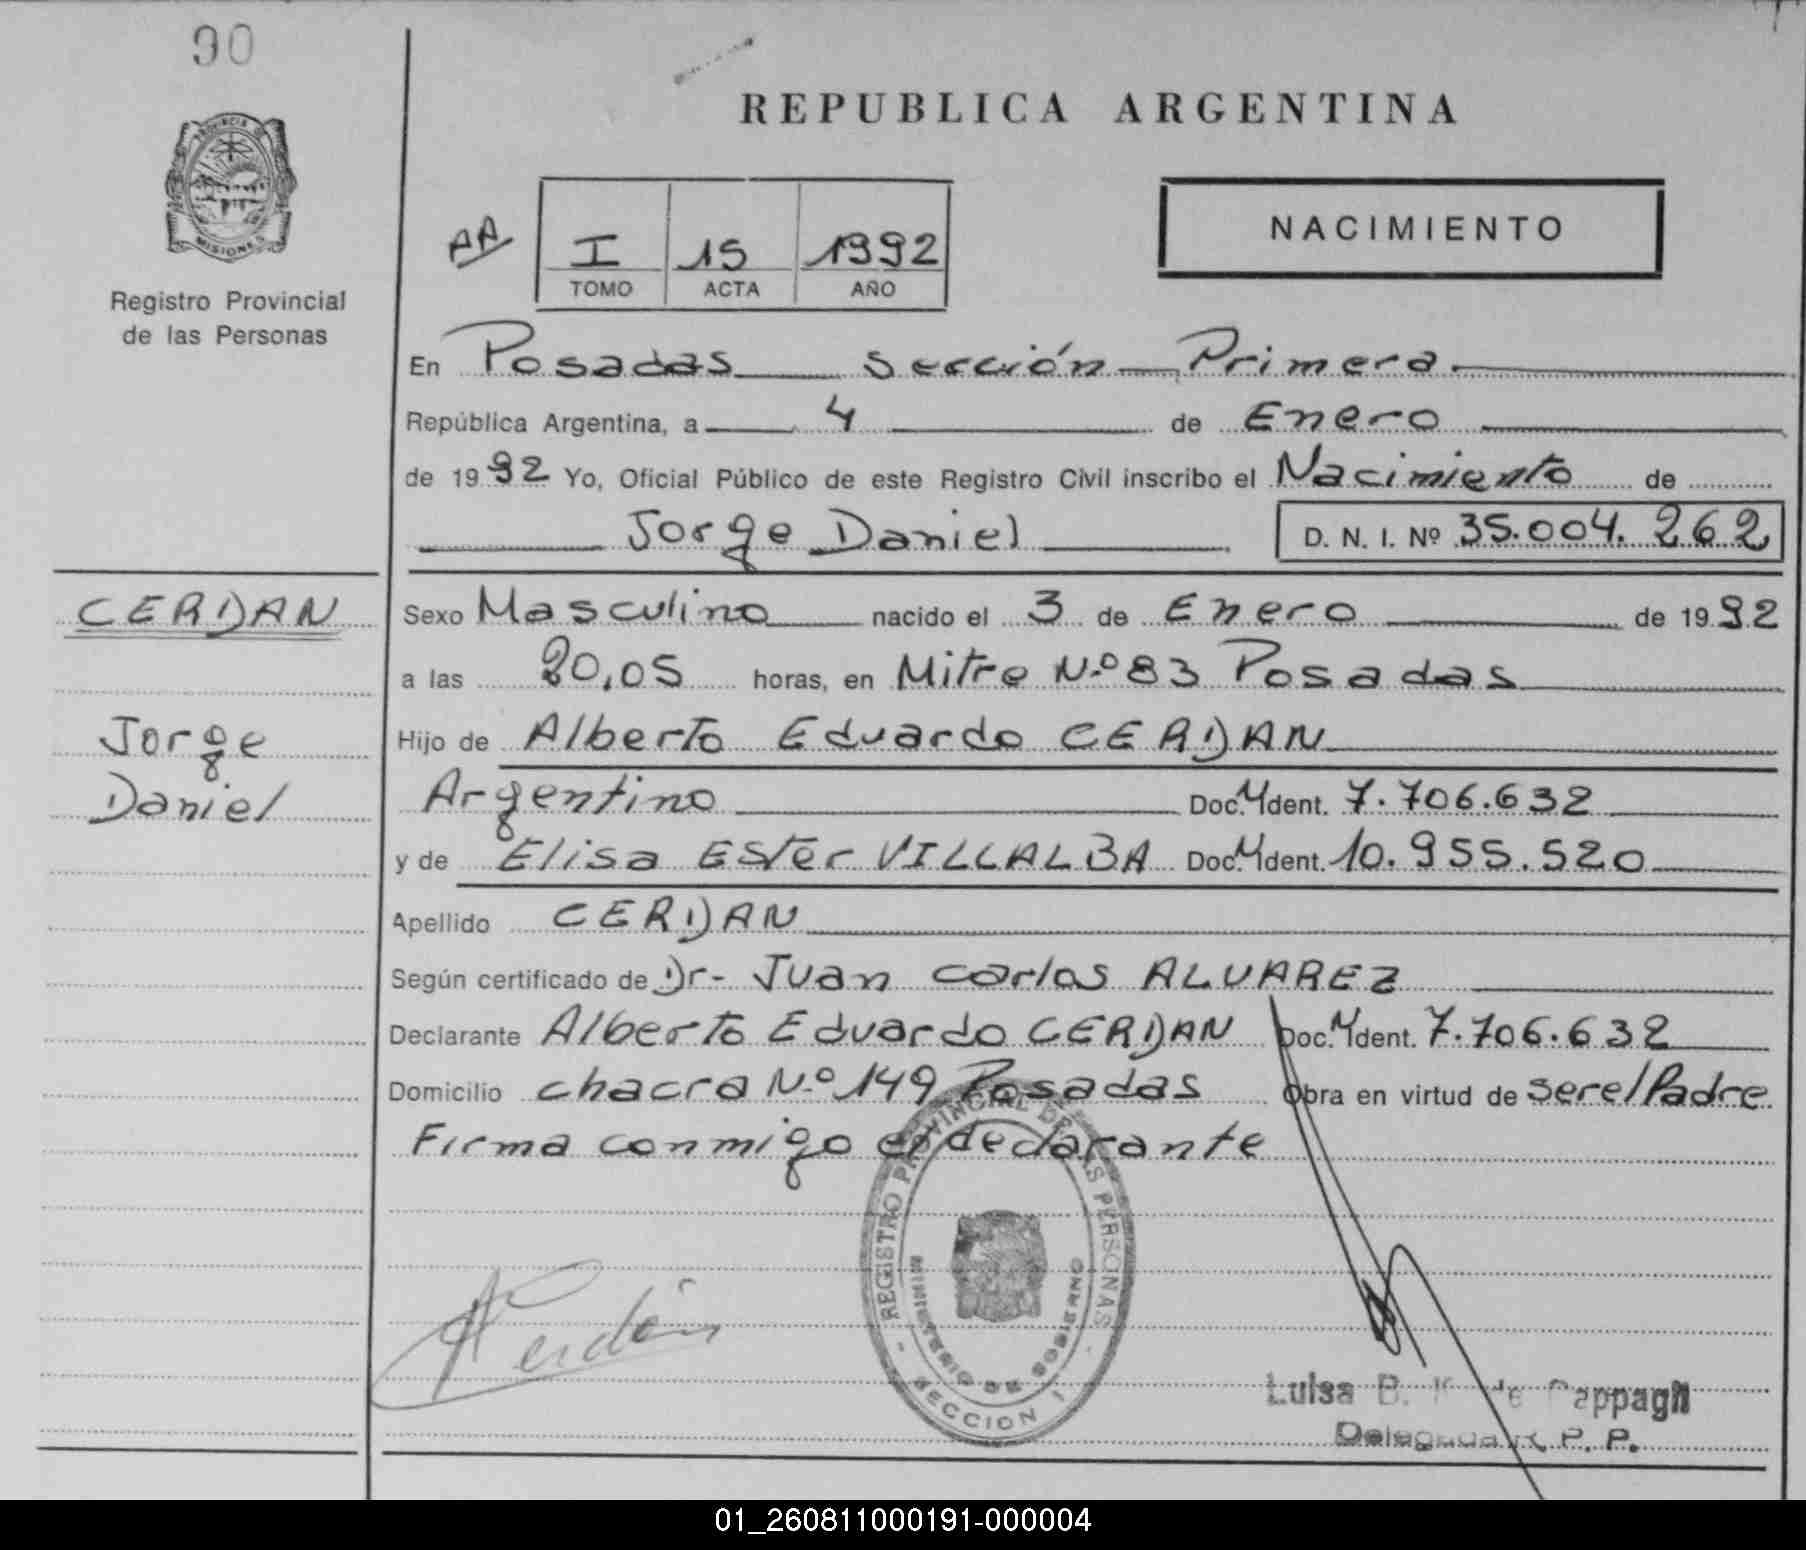 90
REPUBLICA ARGENTINA
PROVINCIA DE
MISIONES
Registro Provincial
de las Personas
AA
I 15 1992
TOMO ACTA AÑO
NACIMIENTO
En Posadas Sección Primera
República Argentina, a 4 de Enero
de 1992 Yo, Oficial Público de este Registro Civil inscribo el Nacimiento de
Jorge Daniel D. N. I. Nº 35.004.262
CERDAN
Jorge
Daniel
Sexo Masculino nacido el 3 de Enero de 1992
a las 20,05 horas, en Mitre N.º 83 Posadas
Hijo de Alberto Eduardo CERDAN
Argentino Doc. Ident. 7.706.632
y de Elisa Ester VILLALBA Doc. Ident. 10.955.520
Apellido CERDAN
Según certificado de Dr- Juan Carlos ALVAREZ
Declarante Alberto Eduardo CERDAN Doc. Ident. 7.706.632
Domicilio chacra N.º 149 Posadas Obra en virtud de ser el Padre
Firma conmigo el declarante
REGISTRO PROVINCIAL DE LAS PERSONAS
MINISTERIO DE GOBIERNO
- SECCION I -
Cerdán
Luisa B. de
Delegada R. P. P.
01_260811000191-000004